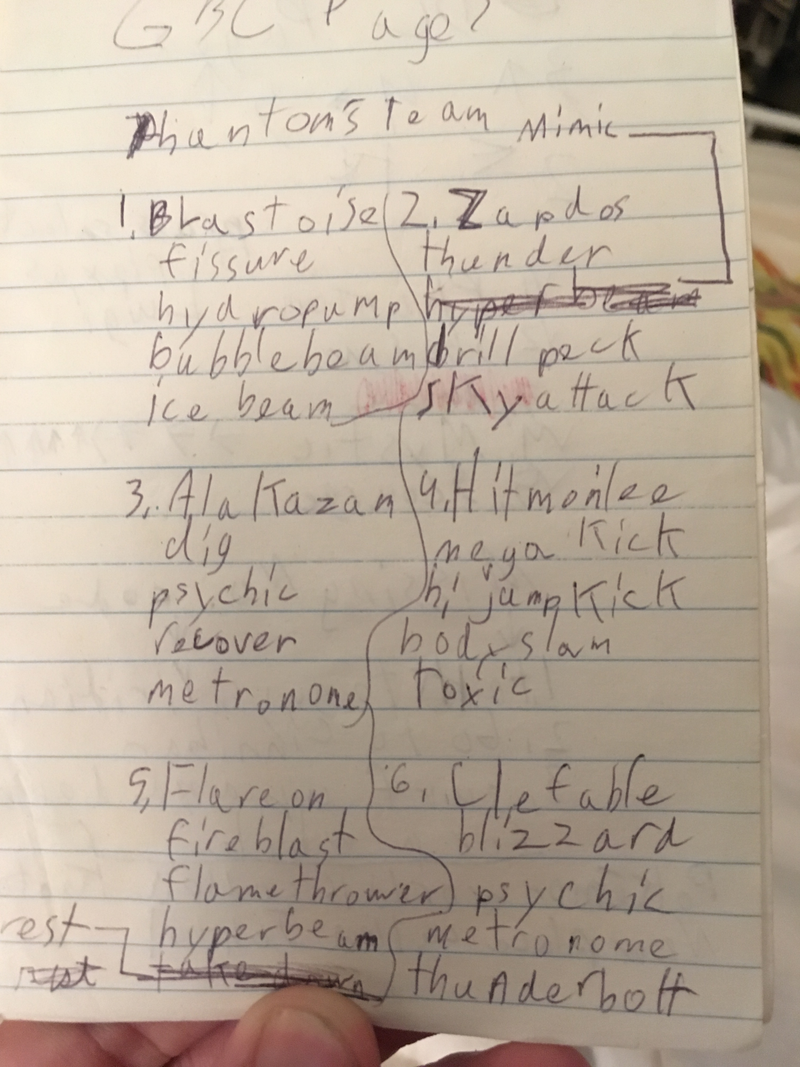 GBC Page 2
Phantom's Team Mimic
1. Blastoise
fissure
hydropump
bubblebeam
ice beam
2. Zapdos
thunder
hyper beam
drill peck
sky attack
3. Alakazam
dig
psychic
recover
metronone
4. Hitmonlee
mega kick
hi jump kick
body slam
toxic
5. Flareon
fireblast
flamethrower
hyperbeam
rest
rest
take down
6. Clefable
blizzard
psychic
metronome
thunderbolt